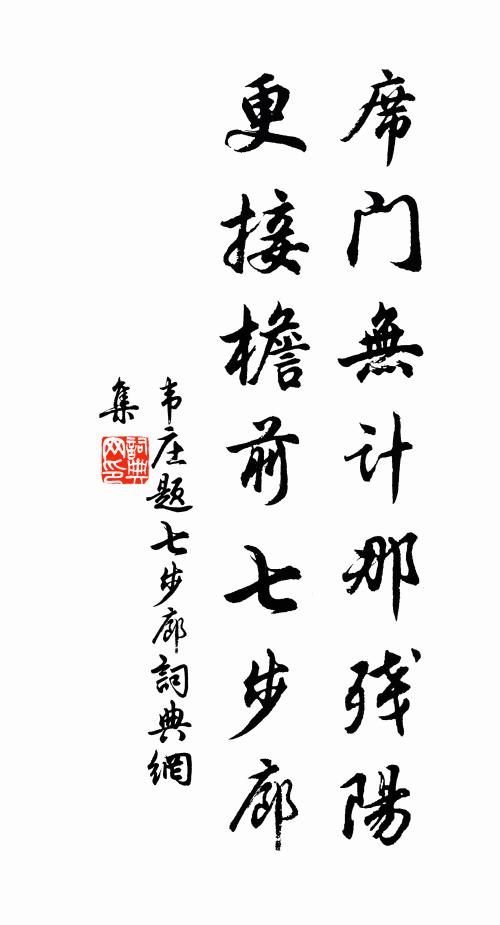 席门無计那残陽
更接檐前七步廊
韦庄题七步廊詞典網
集
詞典
网印